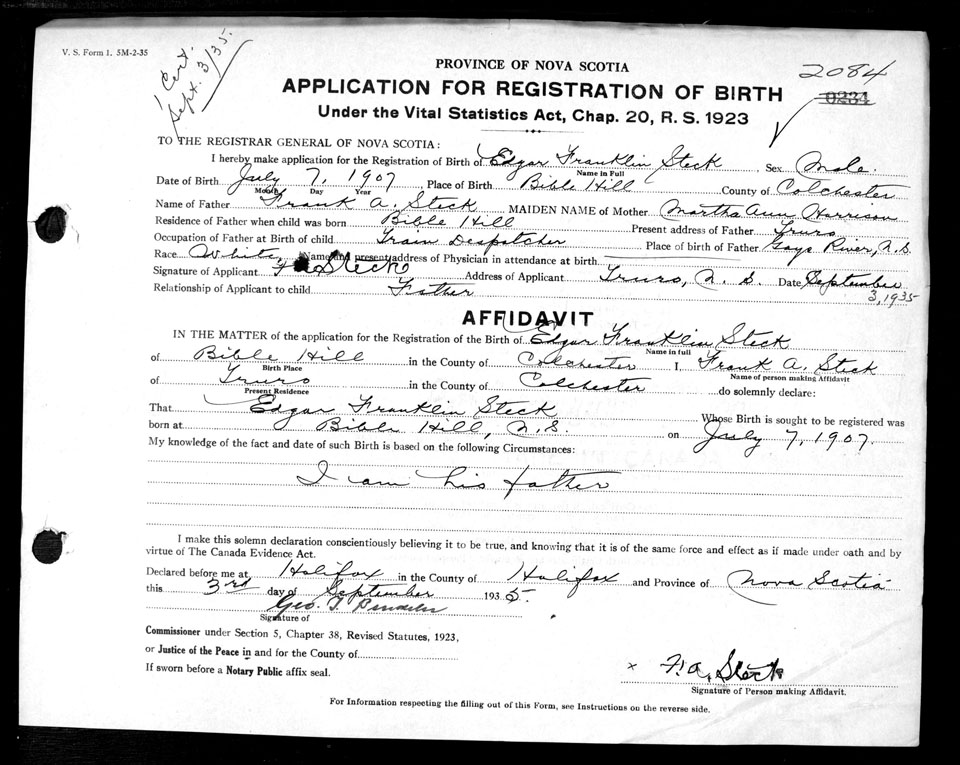 V. S. Form 1. 5M-2-35
1 Cert.
Sept. 3/35.
PROVINCE OF NOVA SCOTIA
2084
APPLICATION FOR REGISTRATION OF BIRTH
0234
Under the Vital Statistics Act, Chap. 20, R. S. 1923
TO THE REGISTRAR GENERAL OF NOVA SCOTIA:
I hereby make application for the Registration of Birth of Edgar Franklin Steck Sex Male.
Name in Full
Date of Birth July 7, 1907 Place of Birth Bible Hill County of Colchester
Month Day Year
Name of Father Frank A. Steck MAIDEN NAME of Mother Martha Ann Harrison
Residence of Father when child was born Bible Hill Present address of Father Truro
Occupation of Father at Birth of child Train Despatcher Place of birth of Father Gays River, N.S.
Race White, Name and present address of Physician in attendance at birth
Signature of Applicant F A Steck Address of Applicant Truro, N. S. Date September
3, 1935
Relationship of Applicant to child Father
AFFIDAVIT
IN THE MATTER of the application for the Registration of the Birth of Edgar Franklin Steck
Name in full
of Bible Hill in the County of Colchester I, Frank A. Steck
Birth Place Name of person making Affidavit
of Truro in the County of Colchester do solemnly declare:
Present Residence
That Edgar Franklin Steck Whose Birth is sought to be registered was
born at Bible Hill, N.S. on July 7, 1907.
My knowledge of the fact and date of such Birth is based on the following Circumstances:
I am his father
I make this solemn declaration conscientiously believing it to be true, and knowing that it is of the same force and effect as if made under oath and by
virtue of The Canada Evidence Act.
Declared before me at Halifax in the County of Halifax and Province of Nova Scotia
this 3rd day of September 1935.
Geo. T
Signature of
Commissioner under Section 5, Chapter 38, Revised Statutes, 1923,
or Justice of the Peace in and for the County of
If sworn before a Notary Public affix seal.
x F. A. Steck
Signature of Person making Affidavit.
For Information respecting the filling out of this Form, see Instructions on the reverse side.